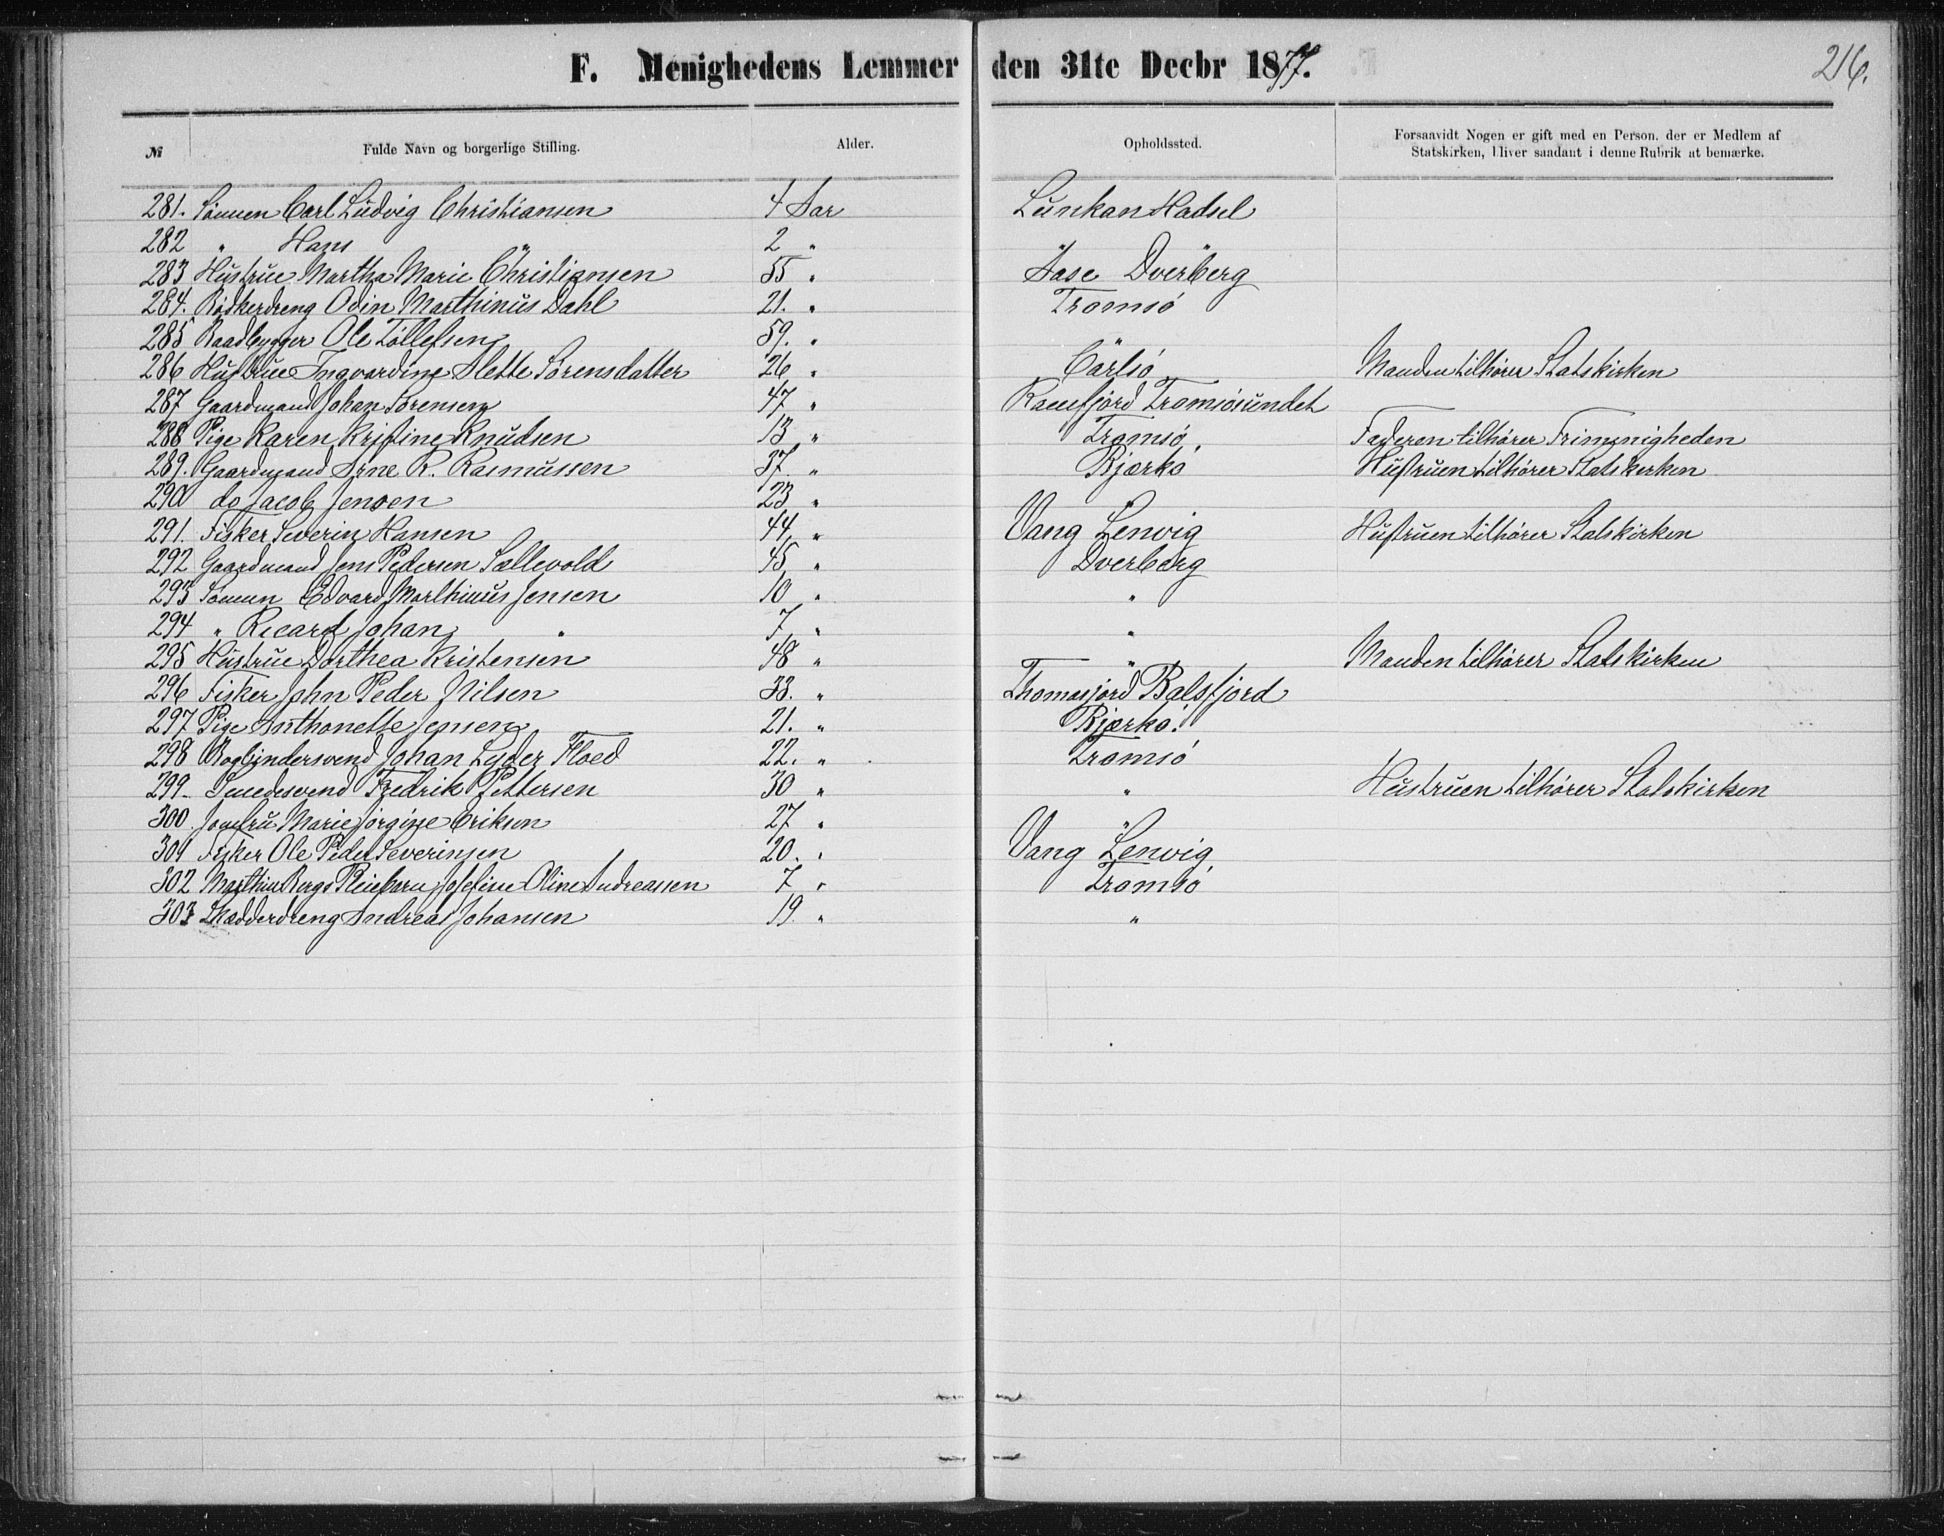 F. Menighedens Lemmer den 31te Decbr 1877.
216.
№ Fulde Navn og borgerlige Stilling. Alder. Opholdssted. Forsaavidt Nogen er gift med en Person, der er Medlem af
Statskirken, bliver saadant i denne Rubrik at bemærke.
281. Sönnen Carl Ludvig Christiansen 4 Aar Lunkan Hadsel
282 " Hans " 2 " " "
283 Hustrue Martha Marie Christiansen 55 " Aase Dverberg
284. Bödkerdreng Odin Marthinus Dahl 21. " Tromsö
285 Baadbygger Ole Tollefsen 59. " "
286 Hustrue Ingvardine Alette Sörensdatter 26 " Carlsö Manden tilhører Statskirken
287 Gaardmand Johan Sörensen 47 " Ramfjord Tromsösundet
288 Pige Karen Kristine Knudsen 13 " Tromsö. Faderen tilhører Frimenigheden
289. Gaardmand Arne R. Rasmussen 37. " Bjærkö Hustruen tilhører Statskirken
290 do Jacob Jensen 23 " "
291. Fisker Severin Hansen 44 " Vang Lenvig Hustruen tilhører Statskirken
292 Gaardmand Jens Pedersen Sællevold 45 " Dverberg
293 Sönnen Edvard Marthinus Jensen 10 " "
294 " Ricard Johan " 7 " "
295 Hustrue Dorthea Kristensen 48 " " Manden tilhører Statskirken
296 Fisker John Peder Nilsen 33. " Thomasjord Balsfjord
297 Pige Anthonette Jensen 21. " Bjærkö.
298 Bogbindersvend Johan Lyder Floed 22. " Tromsö
299. Smedesvend Fredrik Pettersen 30 " " Hustruen tilhører Statskirken
300. Jomfru Marie Jörgine Eriksen 27 " "
301 Fisker Ole Peder Severinsen 20. " Vang Lenvig
302 Marthin Bergs Pleiebarn Josefine Oline Andreassen 7 " Tromsö
303 Skrædderdreng Andreas Johansen 19. " "